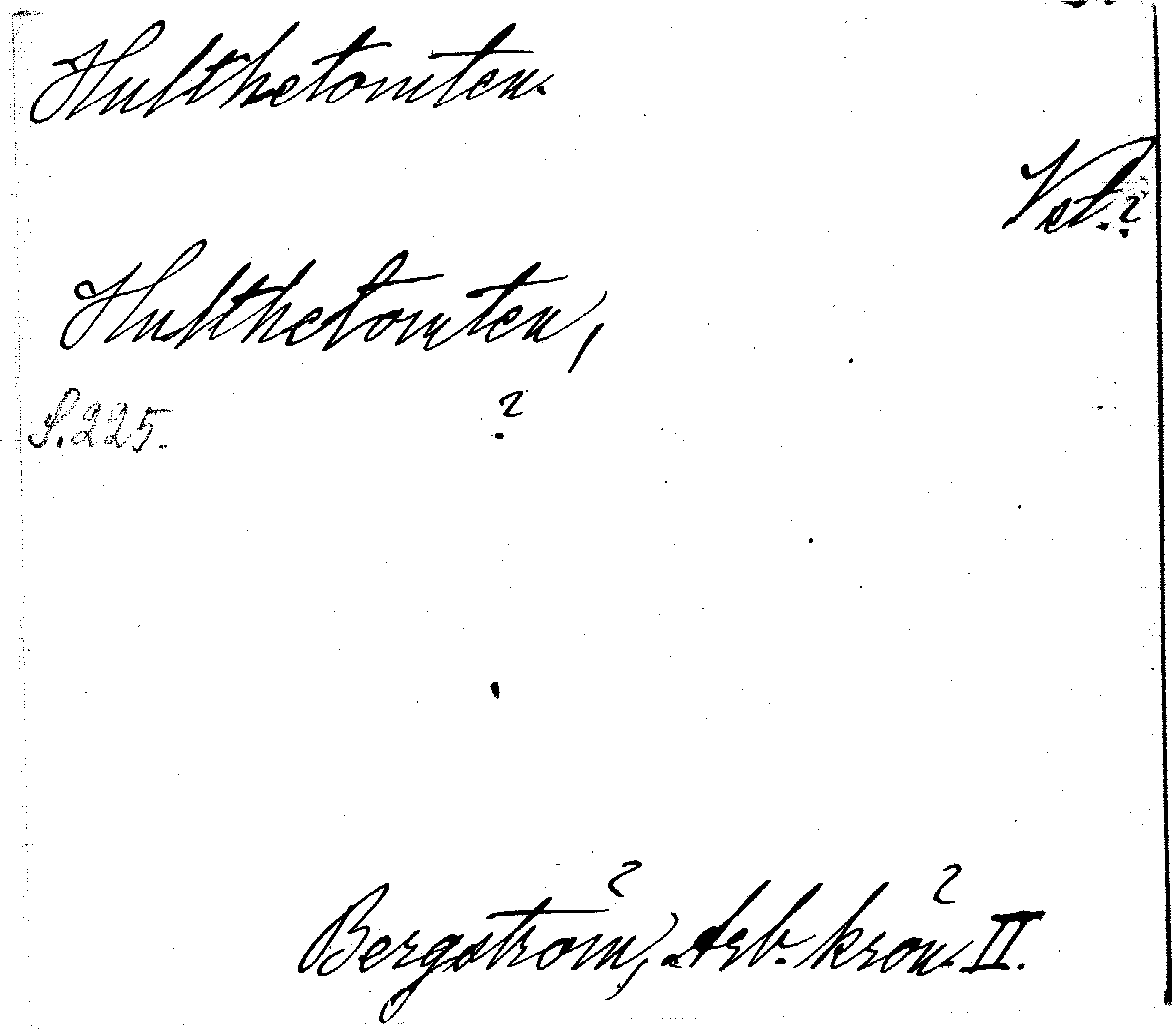 Hulthetomten.
Vet.?
Hulthetomten,
S. 225. ?
Bergström, Arb. krön. II.